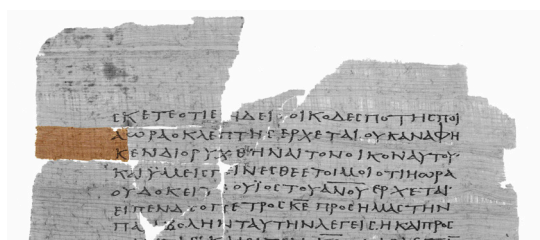 ⲤΚΕΤΕΟΤΙΕ ΗΔΕΙ ΟΙΚΟΔΕϹΠΟΤΗϹΠΟΙ
ΑΩΡΑΟΚΛΕΠΤΗϹΕΡΧΕΤΑΙ ΟΥΚΑΝΑΦΗ
ΚΕΝΔΙΟΡΥΧΘΗΝΑΙΤΟΝΟΙΚΟΝΑΥΤΟΥ·
ΚΑΙΥΜΕΙϹΓΕΙΝΕϹΘΕΕΤΟΙΜΟΙΟΤΙΗΩΡΑ
ΟΥΔΟΚΕΙΤ ΟΥΙΟϹΤΟΥΑΝΟΥΕΡΧΕΤΑΙ·
ΕΙΠΕΝΔ ΟΠΕΤΡΟϹΚΕΠΡΟϹΗΜΑϹΤΗΝ
ΠΑ ΒΟΛΗΝΤΑΥΤΗΝΛΕΓΕΙϹΗΚΑΙΠΡΟϹ